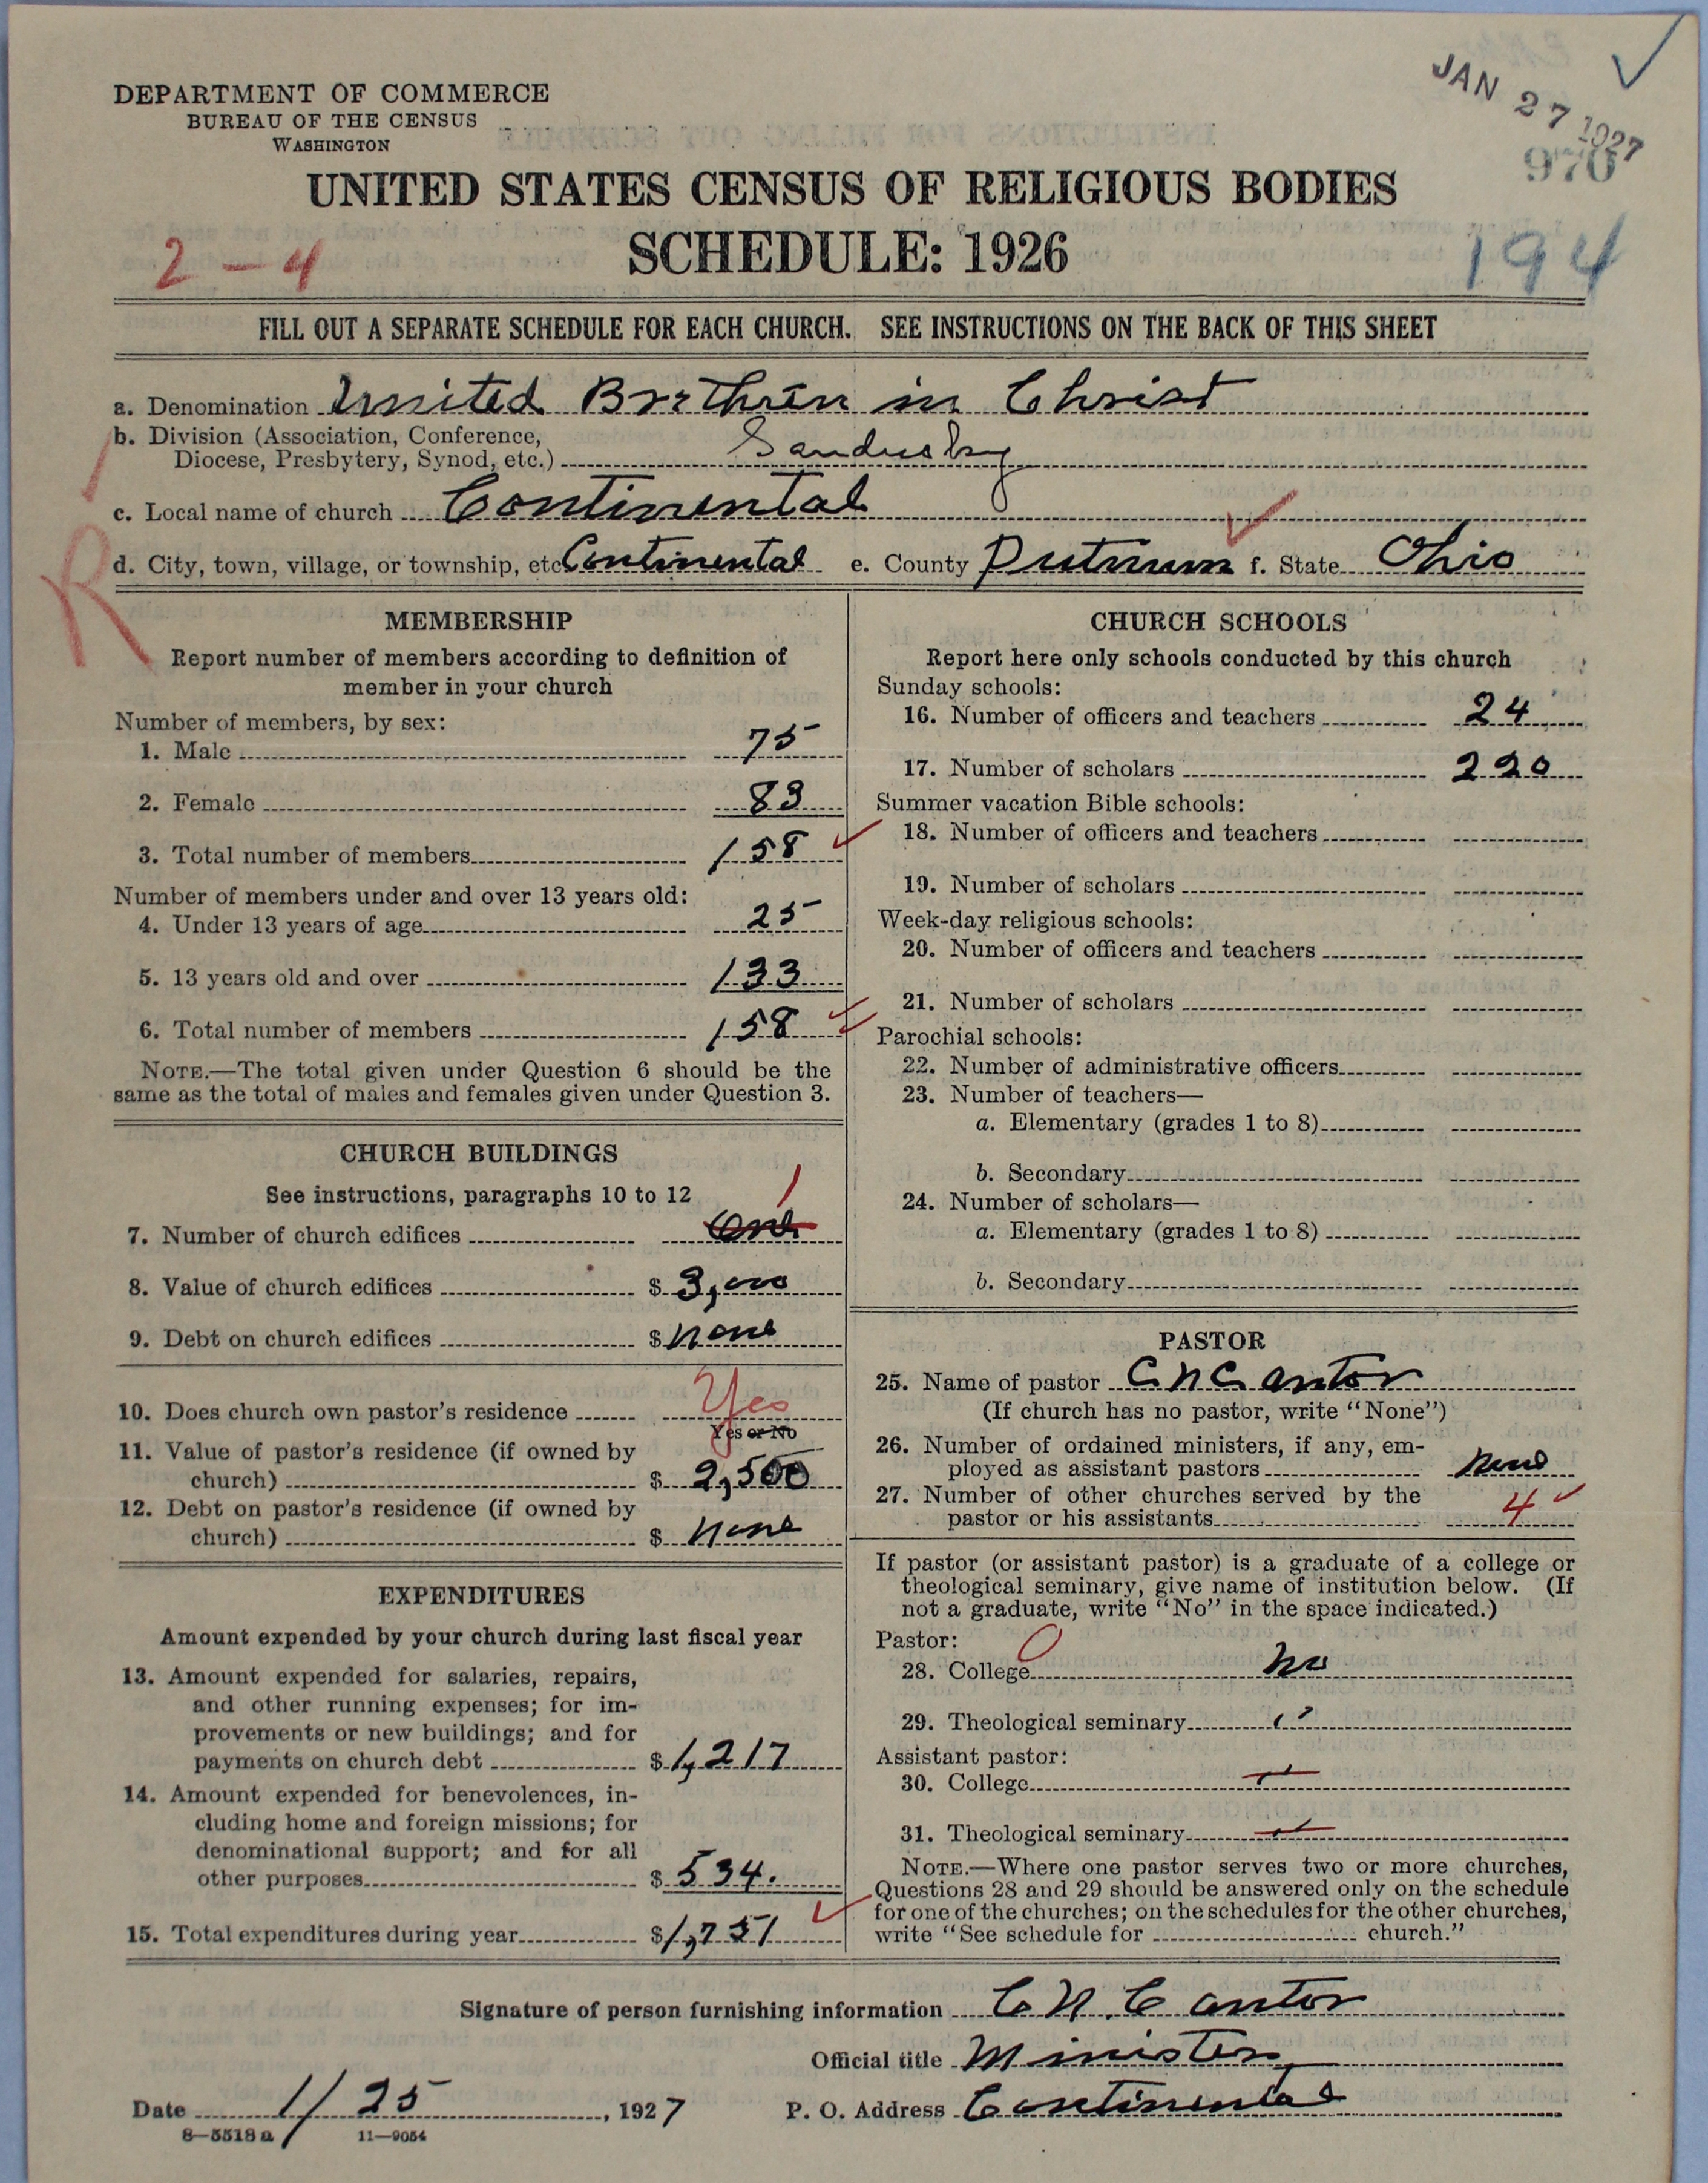 DEPARTMENT OF COMMERCE
BUREAU OF THE CENSUS
WASHINGTON
JAN 27 1927
970
UNITED STATES CENSUS OF RELIGIOUS BODIES
2-4
SCHEDULE: 1926
194
FILL OUT A SEPARATE SCHEDULE FOR EACH CHURCH. SEE INSTRUCTIONS ON THE BACK OF THIS SHEET
a. Denomination United Brethren in Christ
b. Division (Association, Conference,
Diocese, Presbytery, Synod, etc.) Sandusky
c. Local name of church Continental
d. City, town, village, or township, etc. Continental e. County Putnum f. State Ohio
R
MEMBERSHIP
Report number of members according to definition of
member in your church
Number of members, by sex:
1. Male 75
2. Female 83
3. Total number of members 158
Number of members under and over 13 years old:
4. Under 13 years of age 25
5. 13 years old and over 133
6. Total number of members 158
NOTE.—The total given under Question 6 should be the
same as the total of males and females given under Question 3.
CHURCH BUILDINGS
See instructions, paragraphs 10 to 12
1
7. Number of church edifices One
8. Value of church edifices $ 3,000
9. Debt on church edifices $ none
10. Does church own pastor's residence Yes
Yes or No
11. Value of pastor's residence (if owned by
church) $ 2,500
12. Debt on pastor's residence (if owned by
church) $ none
EXPENDITURES
Amount expended by your church during last fiscal year
13. Amount expended for salaries, repairs,
and other running expenses; for im-
provements or new buildings; and for
payments on church debt $ 1,217
14. Amount expended for benevolences, in-
cluding home and foreign missions; for
denominational support; and for all
other purposes $ 534.
15. Total expenditures during year $ 1,751
CHURCH SCHOOLS
Report here only schools conducted by this church
Sunday schools:
16. Number of officers and teachers 24
17. Number of scholars 220
Summer vacation Bible schools:
18. Number of officers and teachers
19. Number of scholars
Week-day religious schools:
20. Number of officers and teachers
21. Number of scholars
Parochial schools:
22. Number of administrative officers
23. Number of teachers—
a. Elementary (grades 1 to 8)
b. Secondary
24. Number of scholars—
a. Elementary (grades 1 to 8)
b. Secondary
PASTOR
25. Name of pastor C N Cantor
(If church has no pastor, write "None")
26. Number of ordained ministers, if any, em-
ployed as assistant pastors None
27. Number of other churches served by the
pastor or his assistants 4
If pastor (or assistant pastor) is a graduate of a college or
theological seminary, give name of institution below. (If
not a graduate, write "No" in the space indicated.)
Pastor: 0
28. College No
29. Theological seminary "
Assistant pastor:
30. College "
31. Theological seminary "
NOTE.—Where one pastor serves two or more churches,
Questions 28 and 29 should be answered only on the schedule
for one of the churches; on the schedules for the other churches,
write "See schedule for church."
Signature of person furnishing information C. N. Cantor
Official title Minister
Date 1/25, 1927 P. O. Address Continental
8—5518a 11—9054